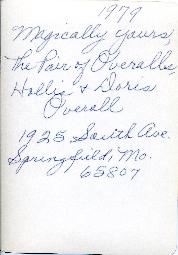 1979
Magically yours,
The Pair of Overalls,
Hollis & Doris
Overall
1925 South Ave.
Springfield, Mo.
65807